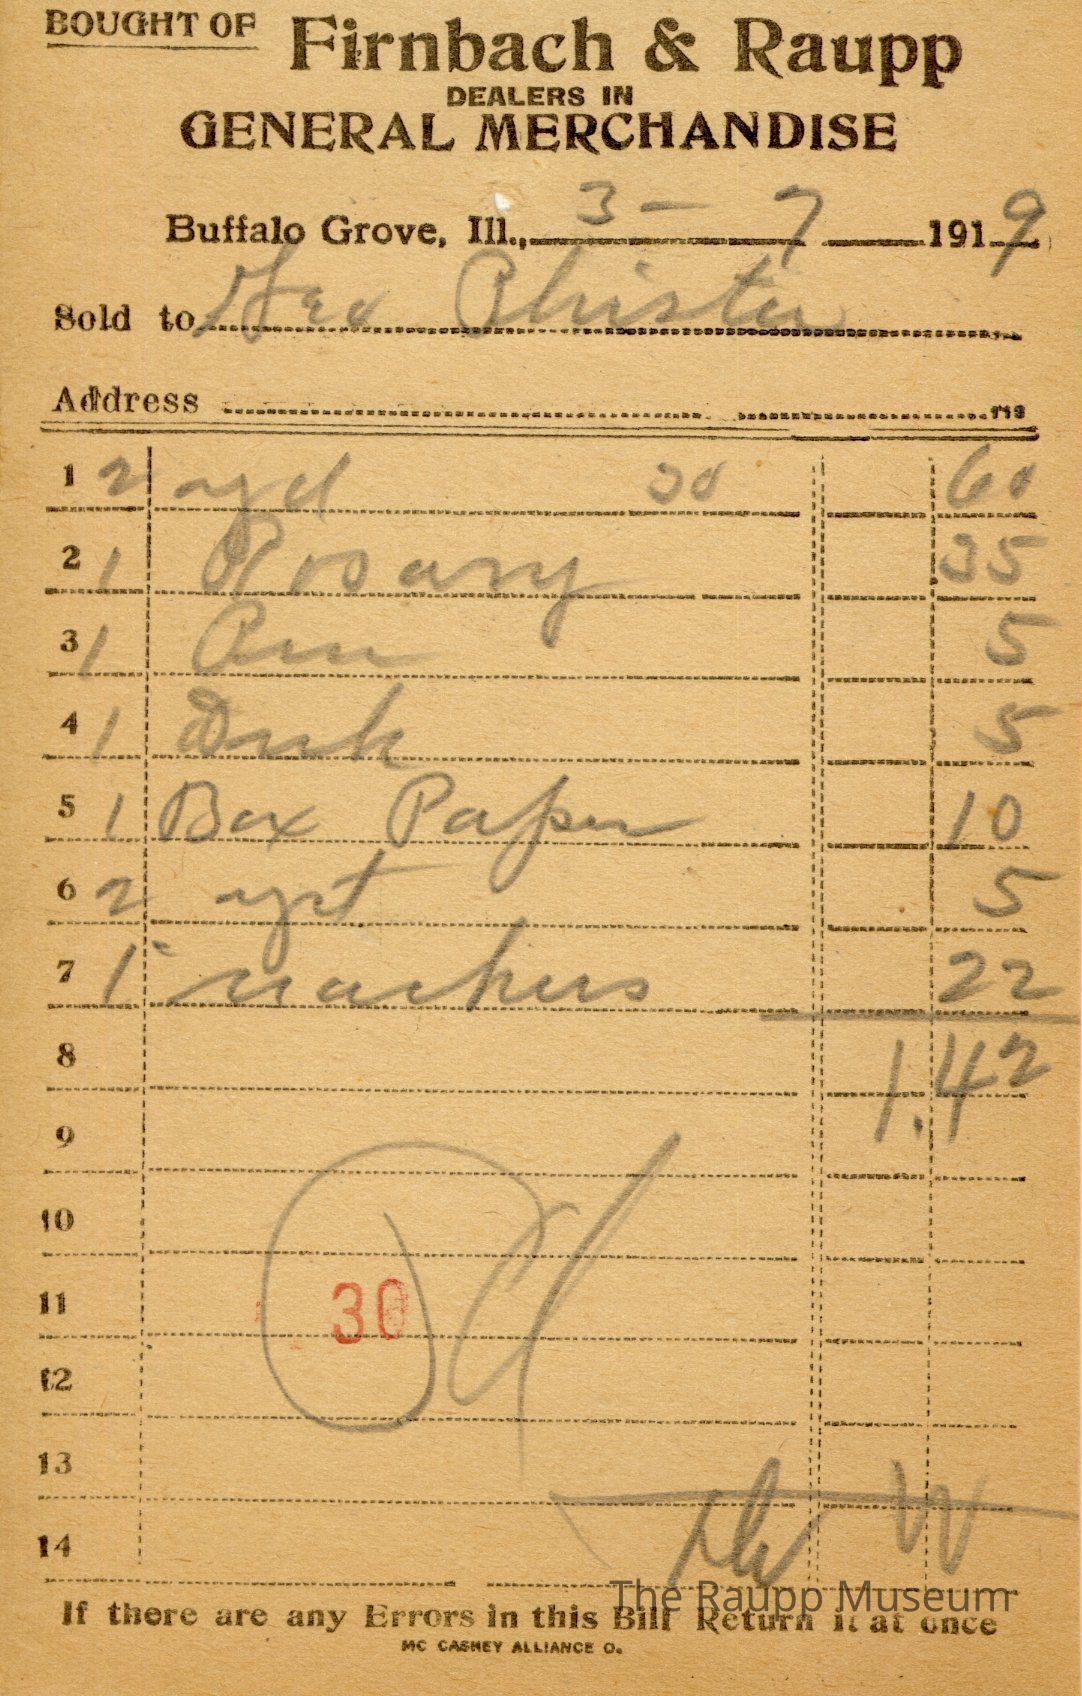 BOUGHT OF Firnbach & Raupp
DEALERS IN
GENERAL MERCHANDISE
Buffalo Grove, Ill., 3 - 7 1919
Sold to Geo
Address 113
1 2 yd 30 60
2 1 Rosary 35
3 1 Pen 5
4 1 5
5 1 Box Paper 10
6 2 yst 5
7 1 22
8 1.42
9
10
11 30
12
13
14
The Raupp Museum
If there are any Errors in this Bill Return it at once
MC CASKEY ALLIANCE O.